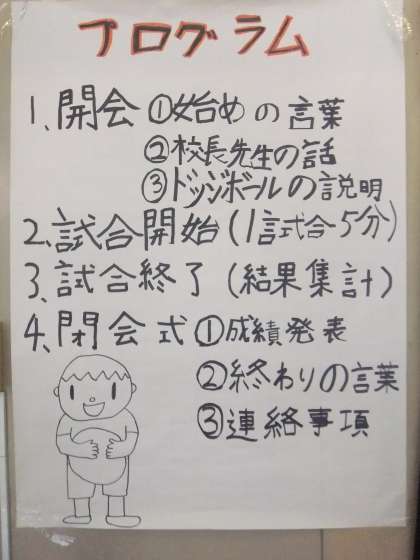 プログラム
1、開会 ①始めの言葉
②校長先生の話
③ドッジボールの説明
2、試合開始(1試合5分)
3、試合終了(結果集計)
4、閉会式 ①成績発表
②終わりの言葉
③連絡事項